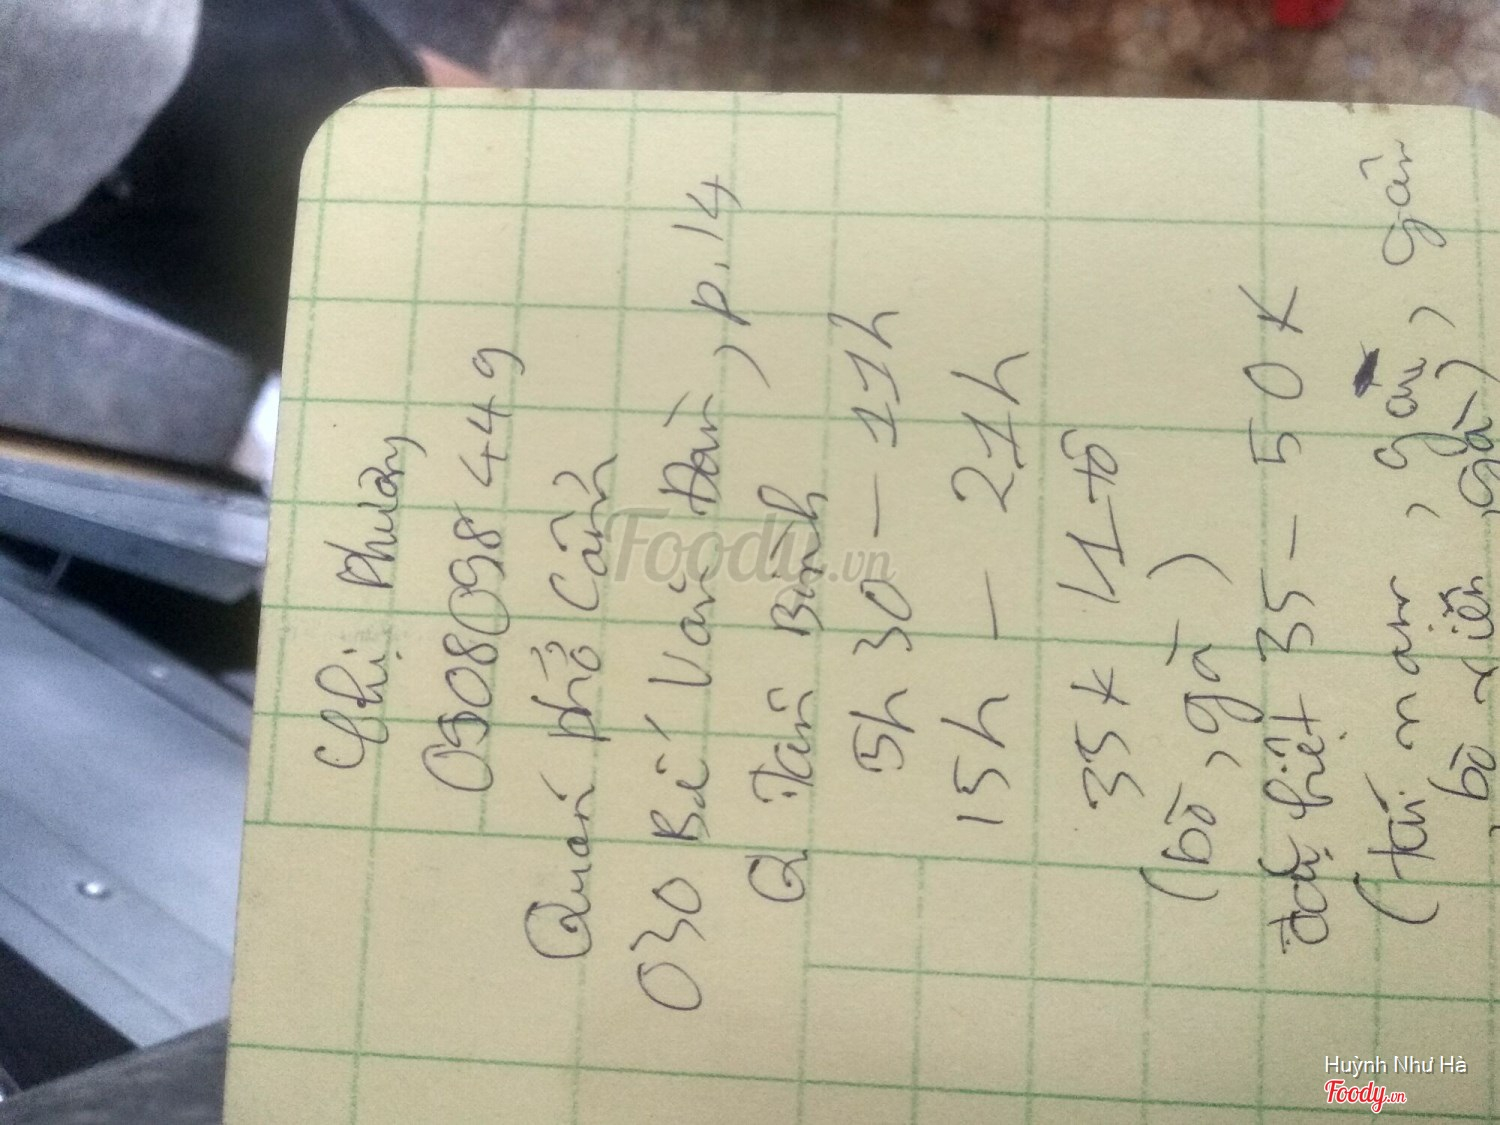 Chị Phường
0908098449
Quán phở Cần
030 Bế Văn Đàn, P.14
Q Tân Bình
5h30 - 11h
15h - 21h
35k /1 tô
(bò, gà)
đặc biệt 35 - 50K
(tái nạm, gàu, gân
, bò viên, gà)
Foody.vn
Huỳnh Như Hà
Foody.vn